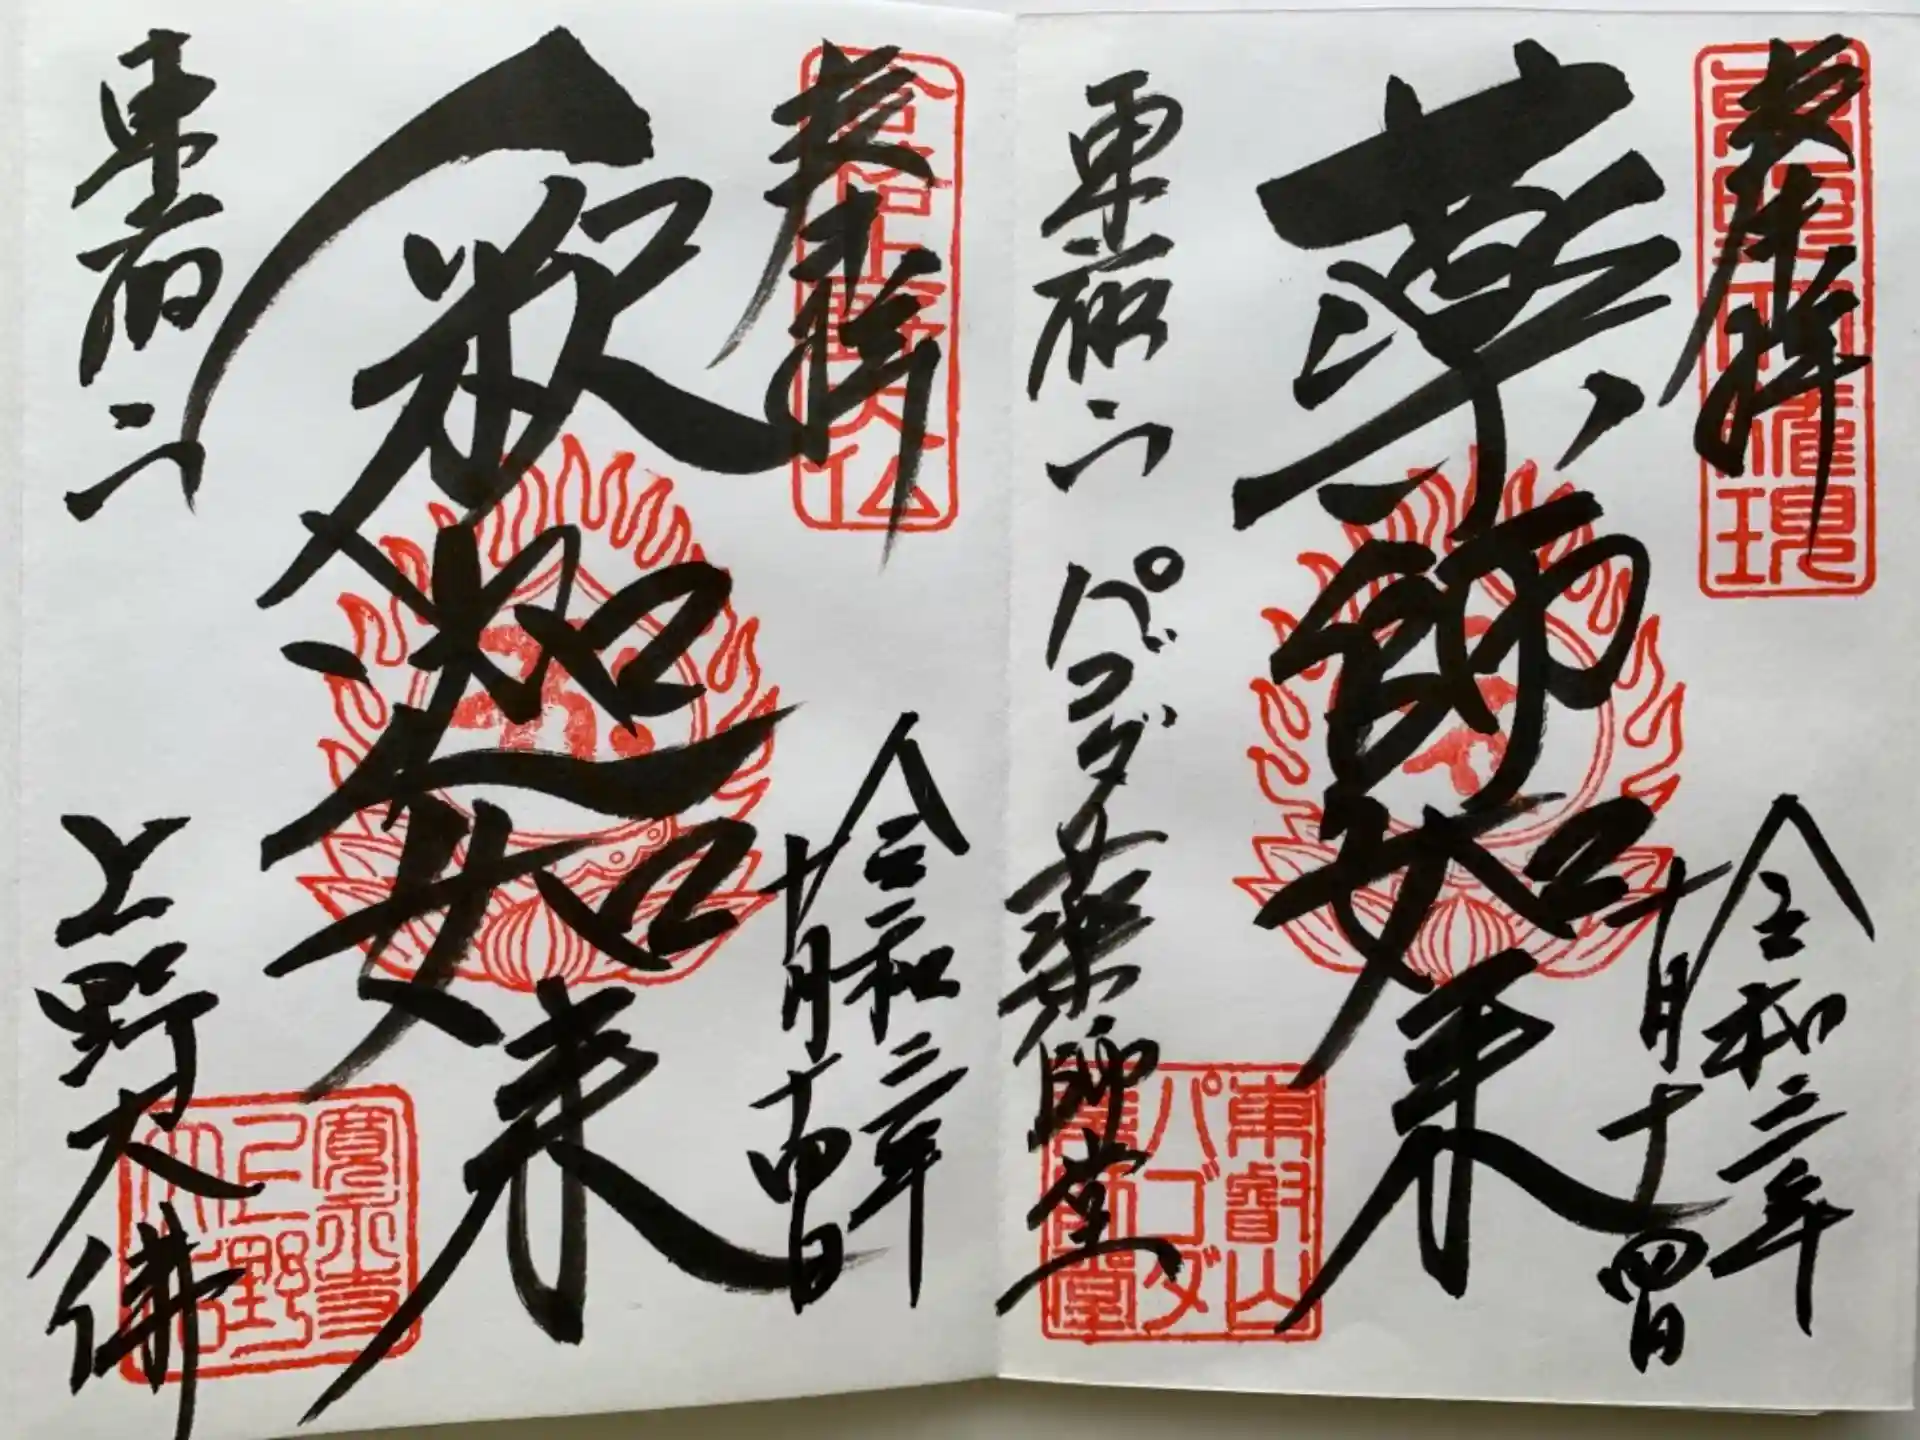 奉拝
薬師如来
令和三年
十月十四日
東叡山
パゴダ薬師堂
東叡山
パゴダ
薬師堂
合格上野大仏
奉拝
釈迦如来
令和三年
十月十四日
東叡山
上野大佛
寛永寺
上野
大仏